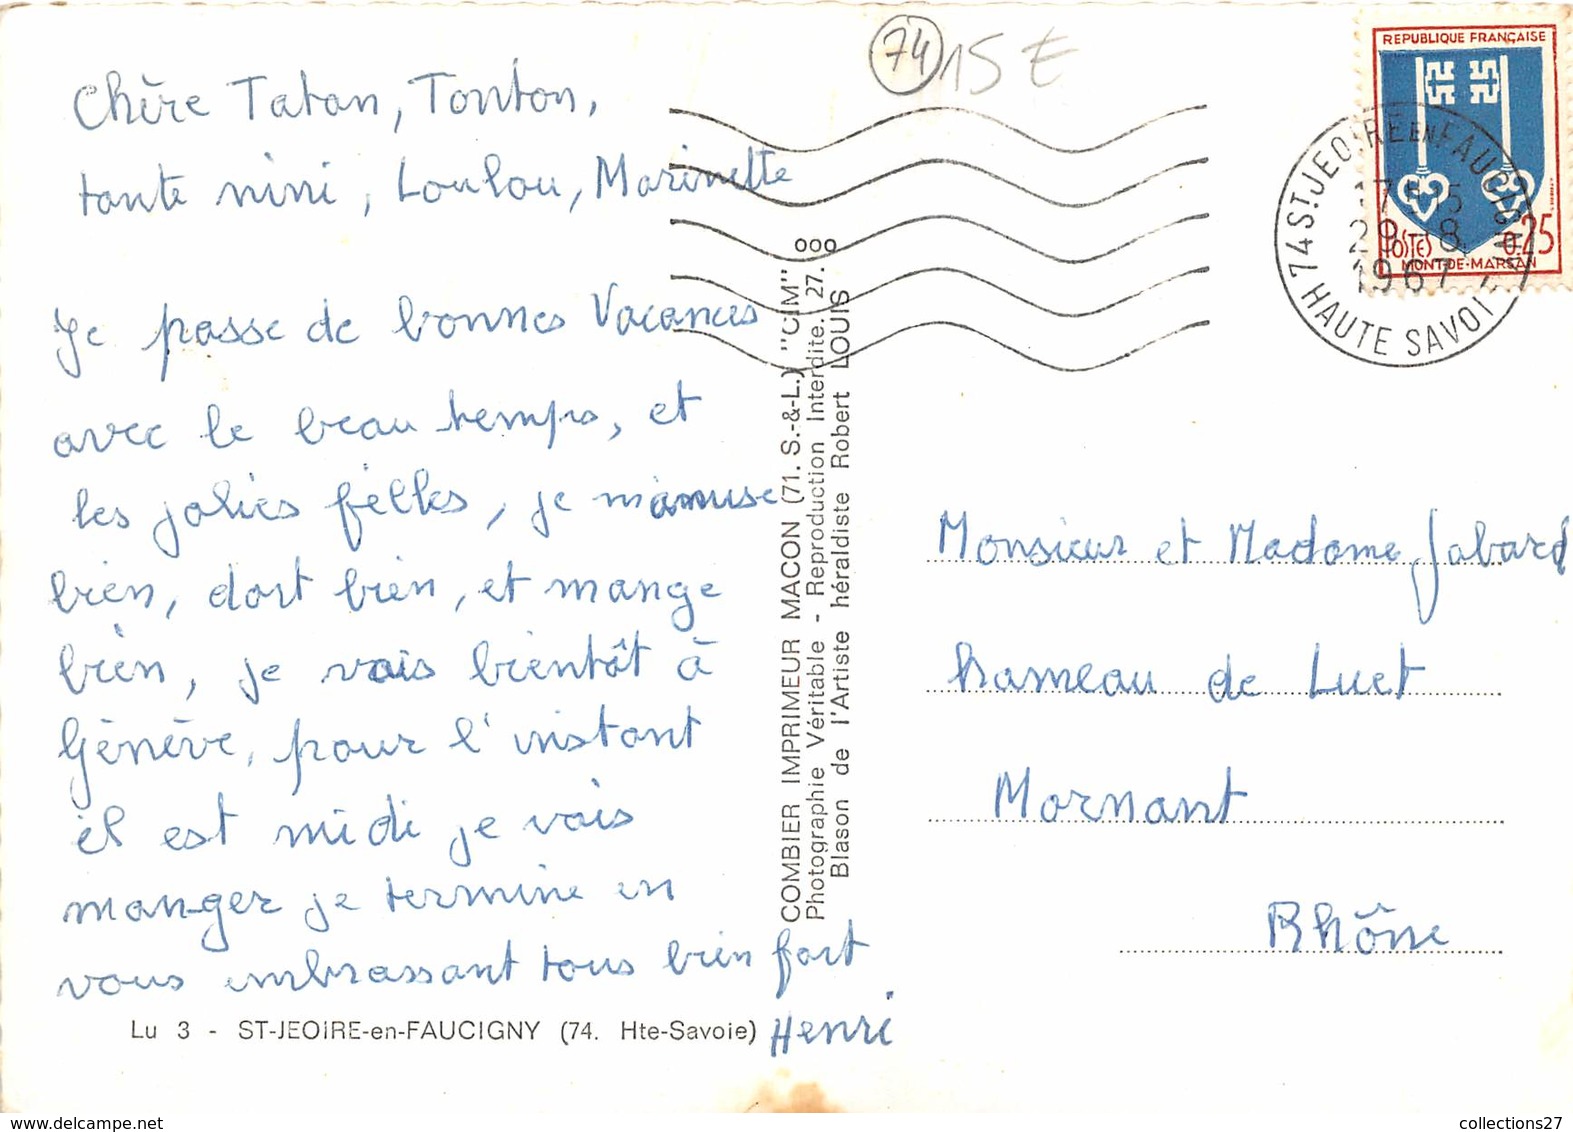 74 15 €
REPUBLIQUE FRANÇAISE
POSTES 0.25
MONT-DE-MARSAN
74 ST.JEOIRE EN FAUCIGNY
29 8
1967
HAUTE SAVOIE
Chère Tatan, Tonton,
tante nini, Loulou, Marinette
Je passe de bonnes Vacances
avec le beau temps, et
les jolies filles, je m'amuse
bien, dort bien, et mange
bien, je vais bientôt à
Génève, pour l'instant
il est midi je vais
manger je termine en
vous embrassant tous bien fort
Henri
Lu 3 - ST-JEOIRE-en-FAUCIGNY (74. Hte-Savoie)
COMBIER IMPRIMEUR MACON (71. S.-&-L.) "CIM" ooo
Photographie Véritable - Reproduction Interdite. 27.
Blason de l'Artiste héraldiste Robert LOUIS
Monsieur et Madame Jabard
hameau de Luet
Mornant
Rhône
collections27